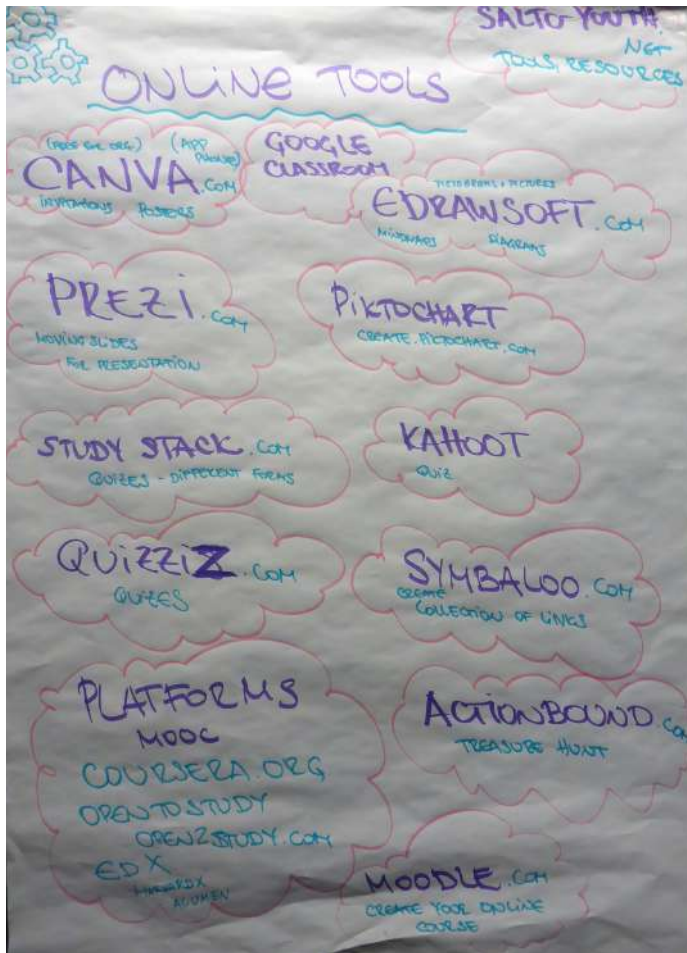 SALTO YOUTH.
NET
TOOLS, RESOURCES
ONLINE TOOLS
(FREE FOR ORG.) (APP PHONE)
CANVA.COM
INVITATIONS POSTERS
GOOGLE
CLASSROOM
PICTOGRAMS + PICTURES
EDRAWSOFT.COM
MINDMAPS DIAGRAMS
PREZI.COM
MOVING SLIDES
FOR PRESENTATION
PIKTOCHART
CREATE.PIKTOCHART.COM
STUDY STACK.COM
QUIZES - DIFFERENT FORMS
KAHOOT
QUIZ
QUIZZIZ.COM
QUIZES
SYMBALOO.COM
CREATE
COLLECTION OF LINKS
PLATFORMS
MOOC
COURSERA.ORG
OPEN TO STUDY
OPEN2STUDY.COM
EDX
HARVARDX
ACUMEN
ACTIONBOUND.COM
TREASURE HUNT
MOODLE.COM
CREATE YOUR ONLINE
COURSE